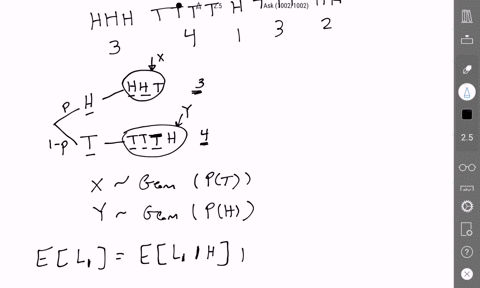 HHH TTTT H
3 4 1 3 2
X
P H HHT 3
Y
1-p T TTTH 4
X ~ Geom (P(T))
Y ~ Geom (P(H))
E[L₁] = E[L₁|H]
2.5